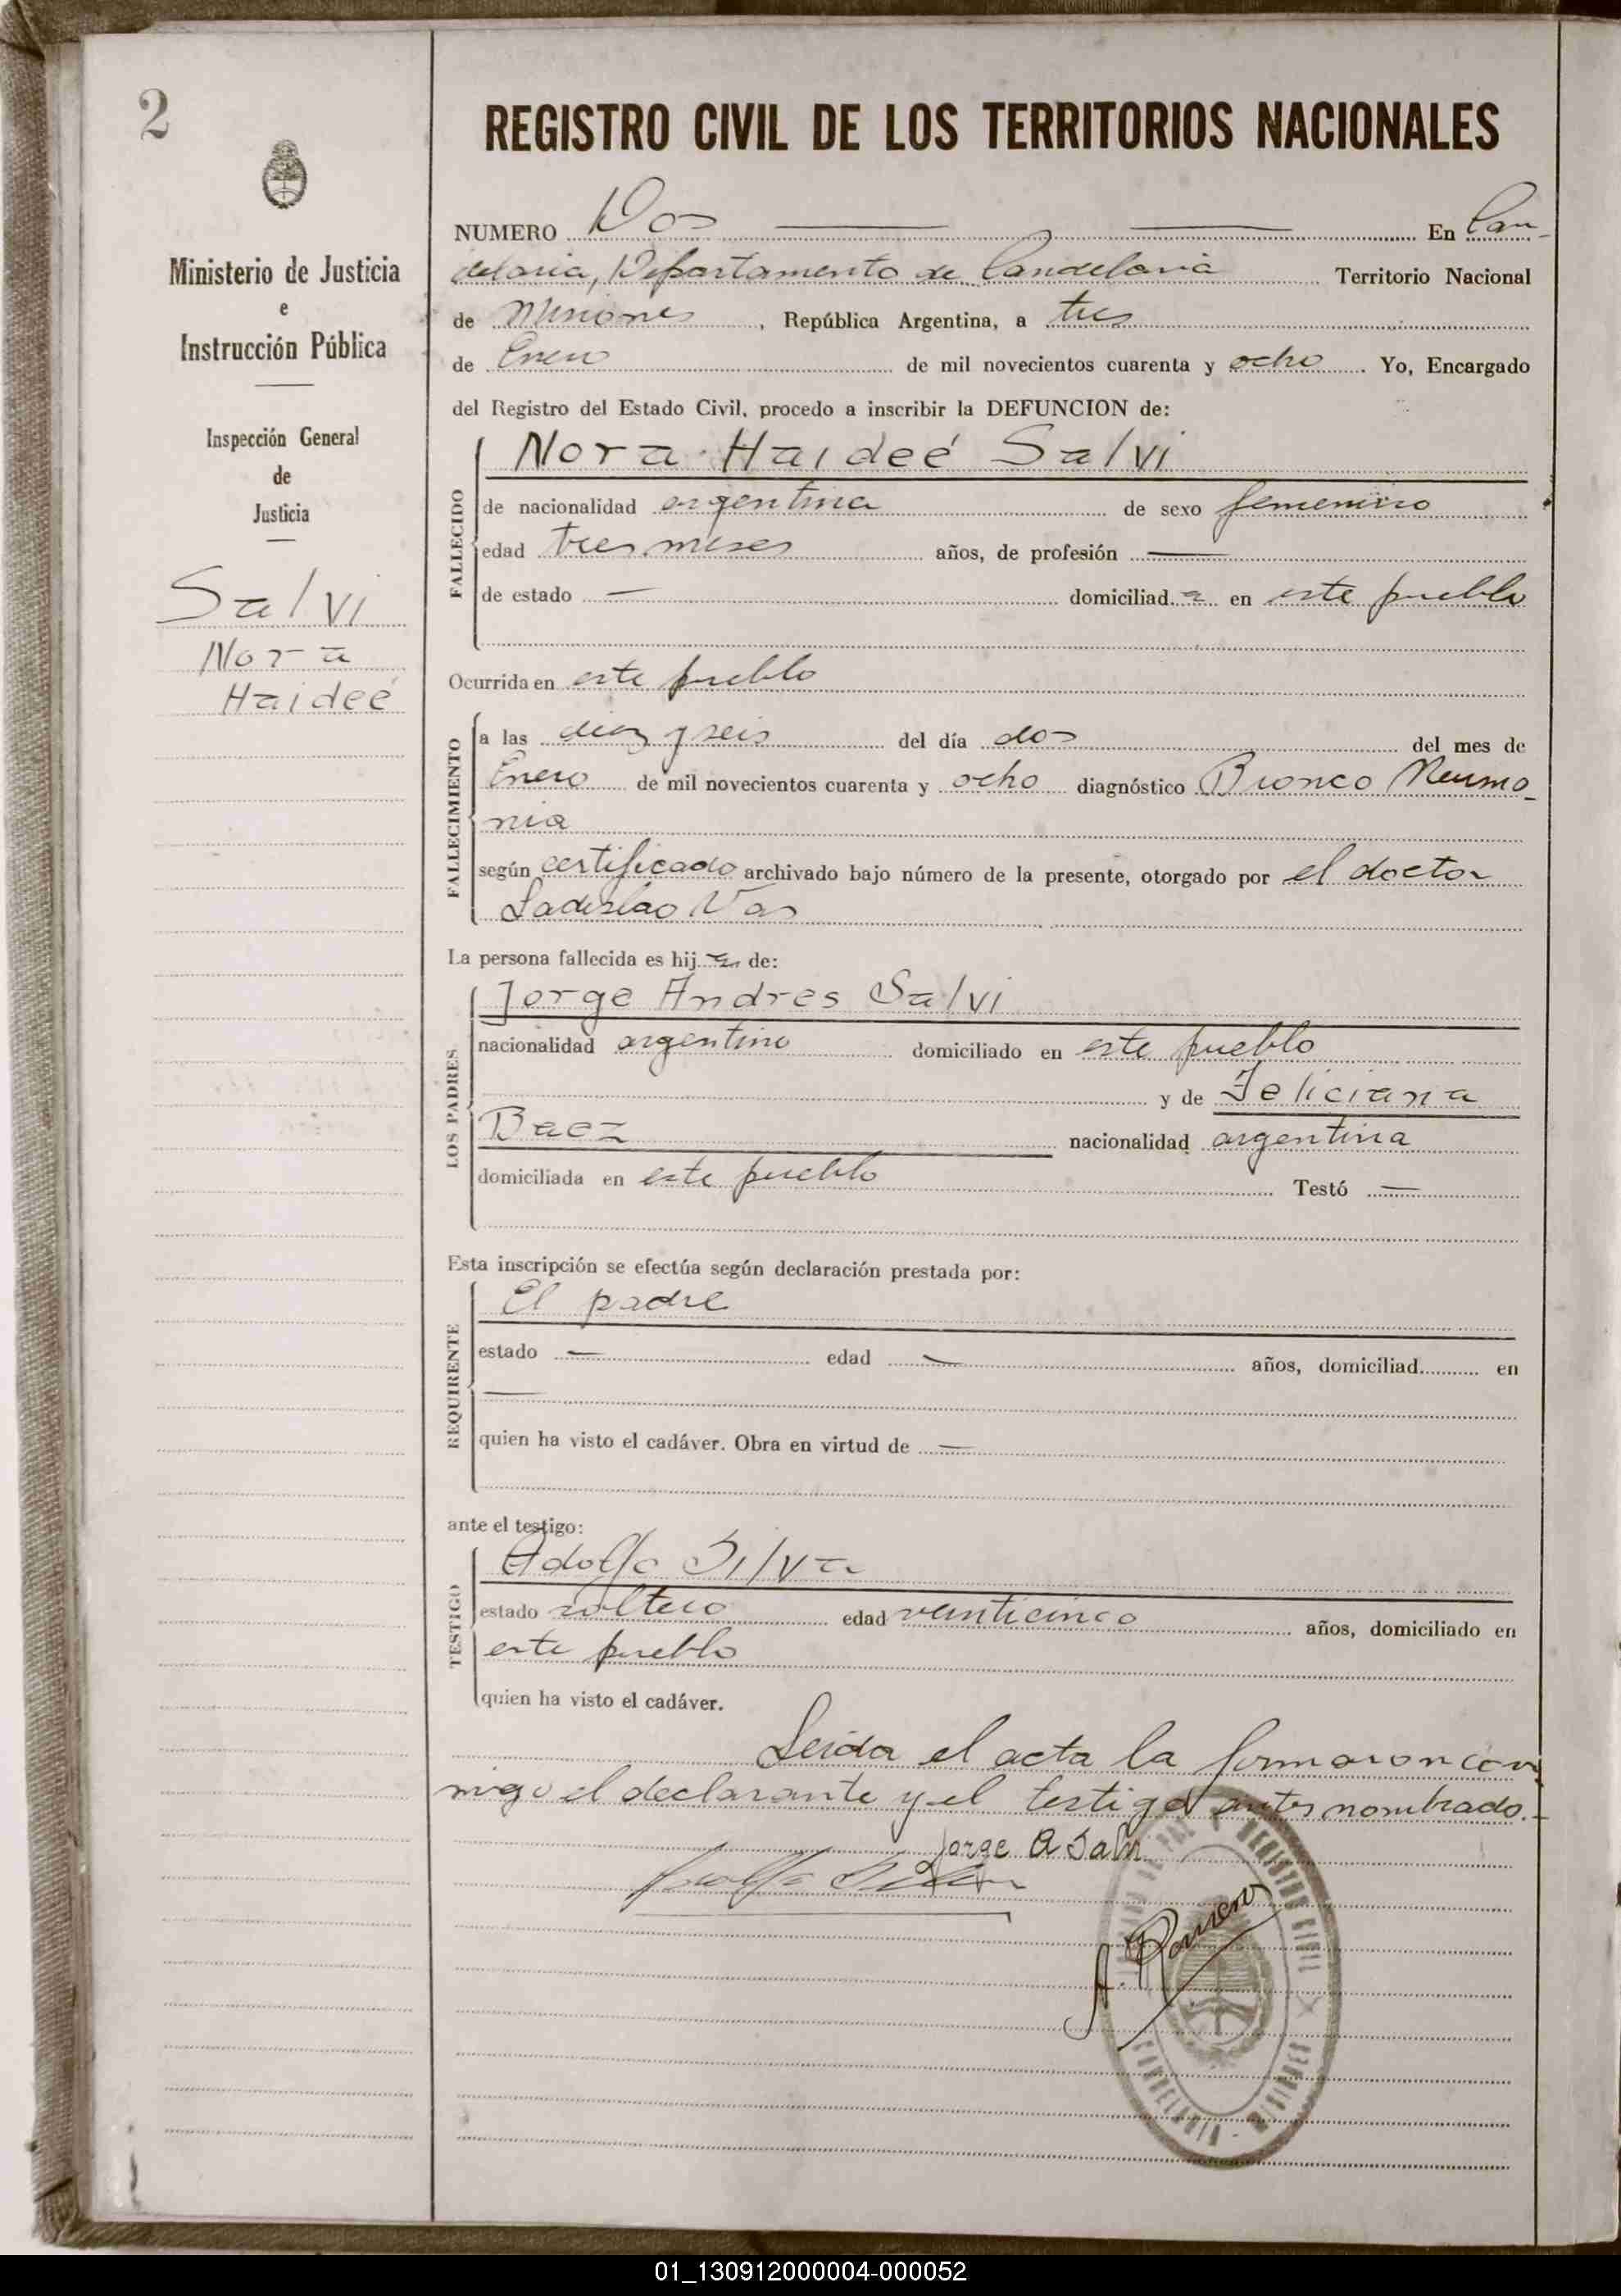 2
Ministerio de Justicia
e
Instrucción Pública
Inspección General
de
Justicia
Salvi
Nora
Haideé
REGISTRO CIVIL DE LOS TERRITORIOS NACIONALES
NUMERO Dos En Can-
delaria, Departamento de Candelaria Territorio Nacional
de Misiones, República Argentina, a tres
de Enero de mil novecientos cuarenta y ocho Yo, Encargado
del Registro del Estado Civil, procedo a inscribir la DEFUNCION de:
FALLECIDO
Nora Haideé Salvi
de nacionalidad argentina de sexo femenino
edad tres meses años, de profesión —
de estado — domiciliad a en este pueblo
Ocurrida en este pueblo
FALLECIMIENTO
a las diez y seis del día dos del mes de
Enero de mil novecientos cuarenta y ocho diagnóstico Bronco Neumo-
nia
según certificado archivado bajo número de la presente, otorgado por el doctor
Ladislao Vas
La persona fallecida es hij a de:
LOS PADRES
Jorge Andres Salvi
nacionalidad argentino domiciliado en este pueblo
y de Feliciana
Baez nacionalidad argentina
domiciliada en este pueblo Testó —
Esta inscripción se efectúa según declaración prestada por:
REQUIRENTE
El padre
estado — edad — años, domiciliad en
—
quien ha visto el cadáver. Obra en virtud de —
ante el testigo:
TESTIGO
Adolfo Silva
estado soltero edad veinticinco años, domiciliado en
este pueblo
quien ha visto el cadáver.
Leida el acta la firmaron con
migo el declarante y el testigo antes nombrado.-
Jorge A Salvi
Adolfo Silva
CANDELARIA - MISIONES
01_130912000004-000052